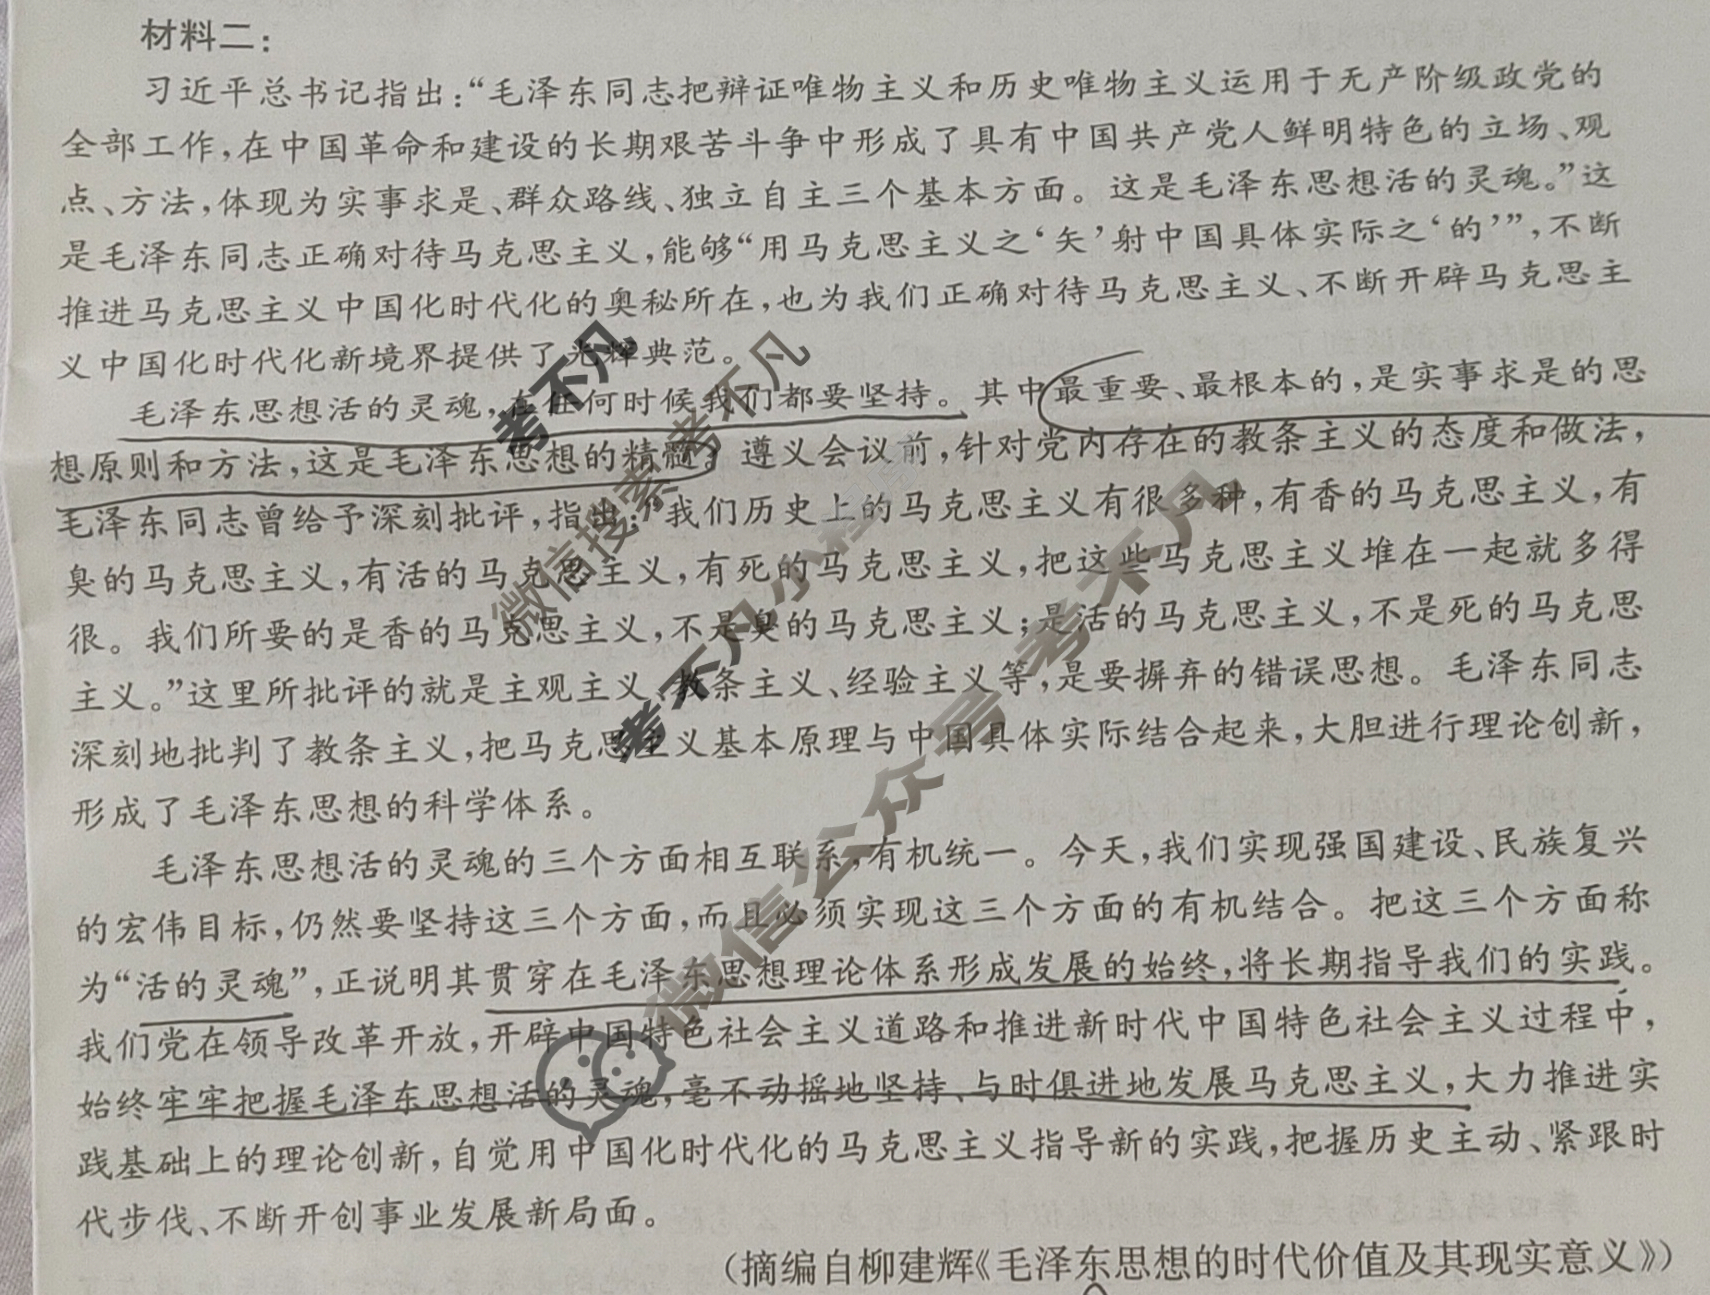 材料二：
习近平总书记指出：“毛泽东同志把辩证唯物主义和历史唯物主义运用于无产阶级政党的
全部工作，在中国革命和建设的长期艰苦斗争中形成了具有中国共产党人鲜明特色的立场、观
点、方法，体现为实事求是、群众路线、独立自主三个基本方面。这是毛泽东思想活的灵魂。”这
是毛泽东同志正确对待马克思主义，能够“用马克思主义之‘矢’射中国具体实际之‘的’”，不断
推进马克思主义中国化时代化的奥秘所在，也为我们正确对待马克思主义、不断开辟马克思主
义中国化时代化新境界提供了光辉典范。
毛泽东思想活的灵魂，在任何时候我们都要坚持。其中最重要、最根本的，是实事求是的思
想原则和方法，这是毛泽东思想的精髓。遵义会议前，针对党内存在的教条主义的态度和做法，
毛泽东同志曾给予深刻批评，指出：“我们历史上的马克思主义有很多种，有香的马克思主义，有
臭的马克思主义，有活的马克思主义，有死的马克思主义，把这些马克思主义堆在一起就多得
很。我们所要的是香的马克思主义，不是臭的马克思主义；是活的马克思主义，不是死的马克思
主义。”这里所批评的就是主观主义、教条主义、经验主义等，是要摒弃的错误思想。毛泽东同志
深刻地批判了教条主义，把马克思主义基本原理与中国具体实际结合起来，大胆进行理论创新，
形成了毛泽东思想的科学体系。
毛泽东思想活的灵魂的三个方面相互联系，有机统一。今天，我们实现强国建设、民族复兴
的宏伟目标，仍然要坚持这三个方面，而且必须实现这三个方面的有机结合。把这三个方面称
为“活的灵魂”，正说明其贯穿在毛泽东思想理论体系形成发展的始终，将长期指导我们的实践。
我们党在领导改革开放，开辟中国特色社会主义道路和推进新时代中国特色社会主义过程中，
始终牢牢把握毛泽东思想活的灵魂，毫不动摇地坚持、与时俱进地发展马克思主义，大力推进实
践基础上的理论创新，自觉用中国化时代化的马克思主义指导新的实践，把握历史主动、紧跟时
代步伐、不断开创事业发展新局面。
（摘编自柳建辉《毛泽东思想的时代价值及其现实意义》）
考不凡
微信搜索考不凡
考不凡小程
微信公众号考不凡